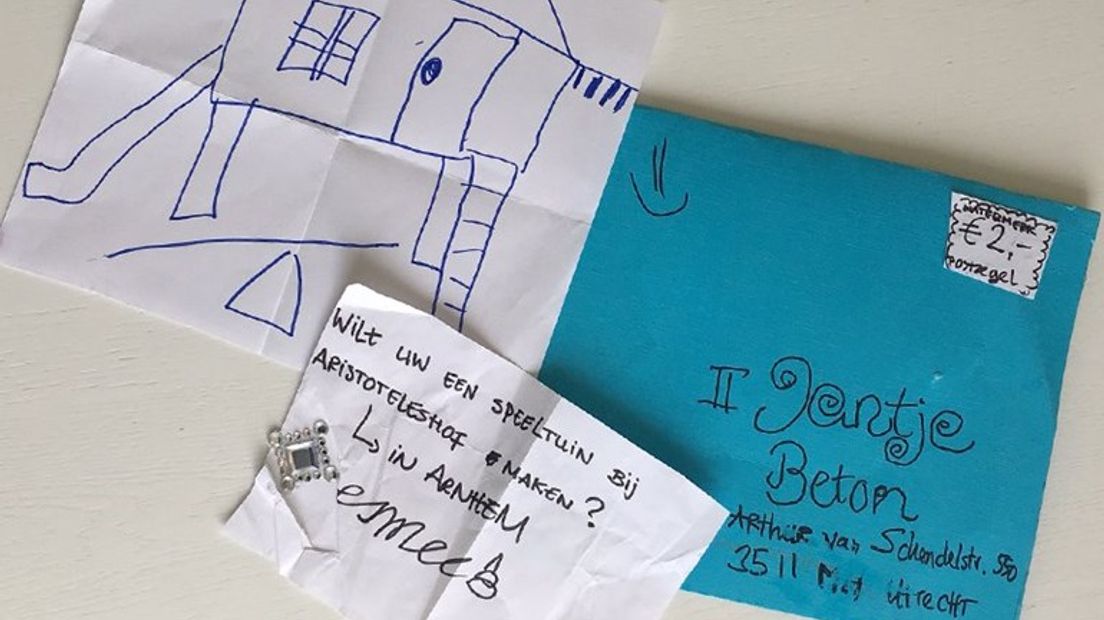 WILT UW EEN SPEELTUIN BIJ
ARISTOTELESHOF MAKEN?
↳ IN ARNHEM
esmee B
€2,-
POSTZEGEL
II Jantje
Beton
ARthur van Schendelstr. 550
3511 UtRECHT